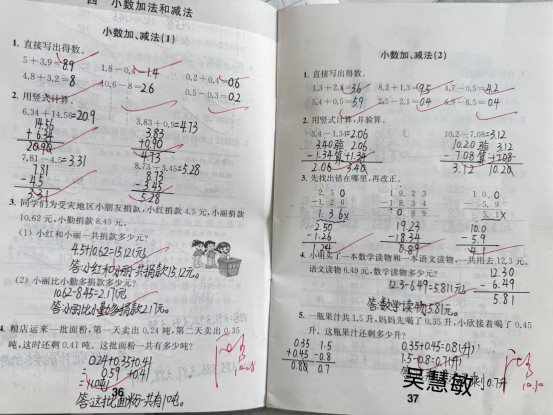 四 小数加法和减法
小数加、减法(1)
1. 直接写出得数。
5+3.9=8.9 1.8-0.4=1.4 0.2+0.4=0.6
4.8+3.2=8 10.6-8=2.6 0.5-0.3=0.2
2. 用竖式计算。
6.34+14.56=20.9 3.83+0.9=4.73
14.56 3.83
+6.34 +0.90
20.90 4.73
7.81-4.5=3.31 8.73-3.45=5.28
7.81 8.73
-4.5 -3.45
3.31 5.28
3. 同学们为受灾地区小朋友捐款,小红捐款4.5元,小丽捐款
10.62元,小勤捐款8.45元。
(1) 小红和小丽一共捐款多少元?
4.5+10.62=15.12(元)
答:小红和小丽一共捐款15.12元。
(2) 小丽比小勤多捐款多少元?
10.62-8.45=2.17(元)
答:小丽比小勤多捐款2.17元。
4. 粮店运来一批面粉,第一天卖出0.24吨,第二天卖出0.35
吨,这时还剩0.41吨。这批面粉一共有多少吨?
0.24+0.35+0.41
=0.59+0.41
=1(吨)
答:这批面粉一共有1吨。
36
小数加、减法(2)
1. 直接写出得数。
1.3+2.3=3.6 8.2+1.3=9.5 4.7-0.5=4.2
5.4+0.5=5.9 2.5-2.1=0.4 6.9-6.5=0.4
2. 用竖式计算,并验算。
3.4-1.34=2.06 10.2-7.08=3.12
3.40 验 2.06 10.20 验 3.12
-1.34 算 +1.34 -7.08 算 +7.08
2.06 3.40 3.12 10.20
3. 先找出错在哪里,再改正。
2.50 19.23 10.0
-1.26 -18.34 -5.9
1.36× 0.89 5.1×
2.50 19.23 10.0
-1.26 -18.34 -5.9
1.24 0.89 4.1
4. 小明买了一本数学读物和一本语文读物,一共用去12.3元,
语文读物6.49元,数学读物多少元?
12.30
12.3-6.49=5.81(元) -6.49
答:数学读物5.81元。 5.81
5. 一瓶果汁共1.5升,妈妈先喝了0.35升,小欣接着喝了0.45
升。这瓶果汁还剩多少升?
0.35 1.5 0.35+0.45=0.8(升)
+0.45 -0.8 1.5-0.8=0.7(升)
0.80 0.7 剩0.7升
吴慧敏
37